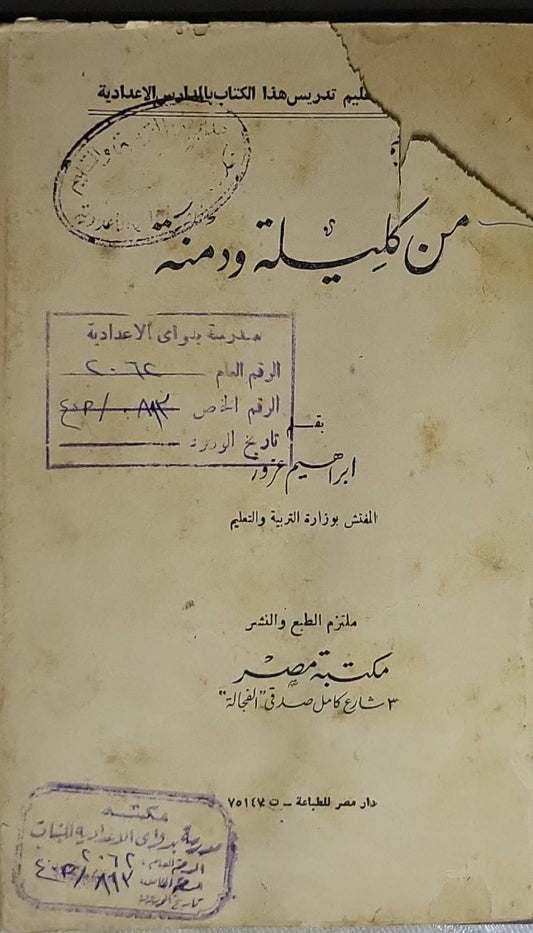 تدريس هذا الكتاب بالمدارس الاعدادية
من كليلة ودمنة
مدرسة بدواى الاعدادية
الرقم العام ٢٠٦٢
الرقم الخاص
تاريخ الورود
بقلم
ابراهيم عزوز
المفتش بوزارة التربية والتعليم
ملتزم الطبع والنشر
مكتبة مصر
٣ شارع كامل صدقى "الفجالة"
دار مصر للطباعة ـ ت ٧٥١٤٧
مكتبة
مدرسة بدواى الاعدادية للبنات
الرقم العام: ٢٠٦٢